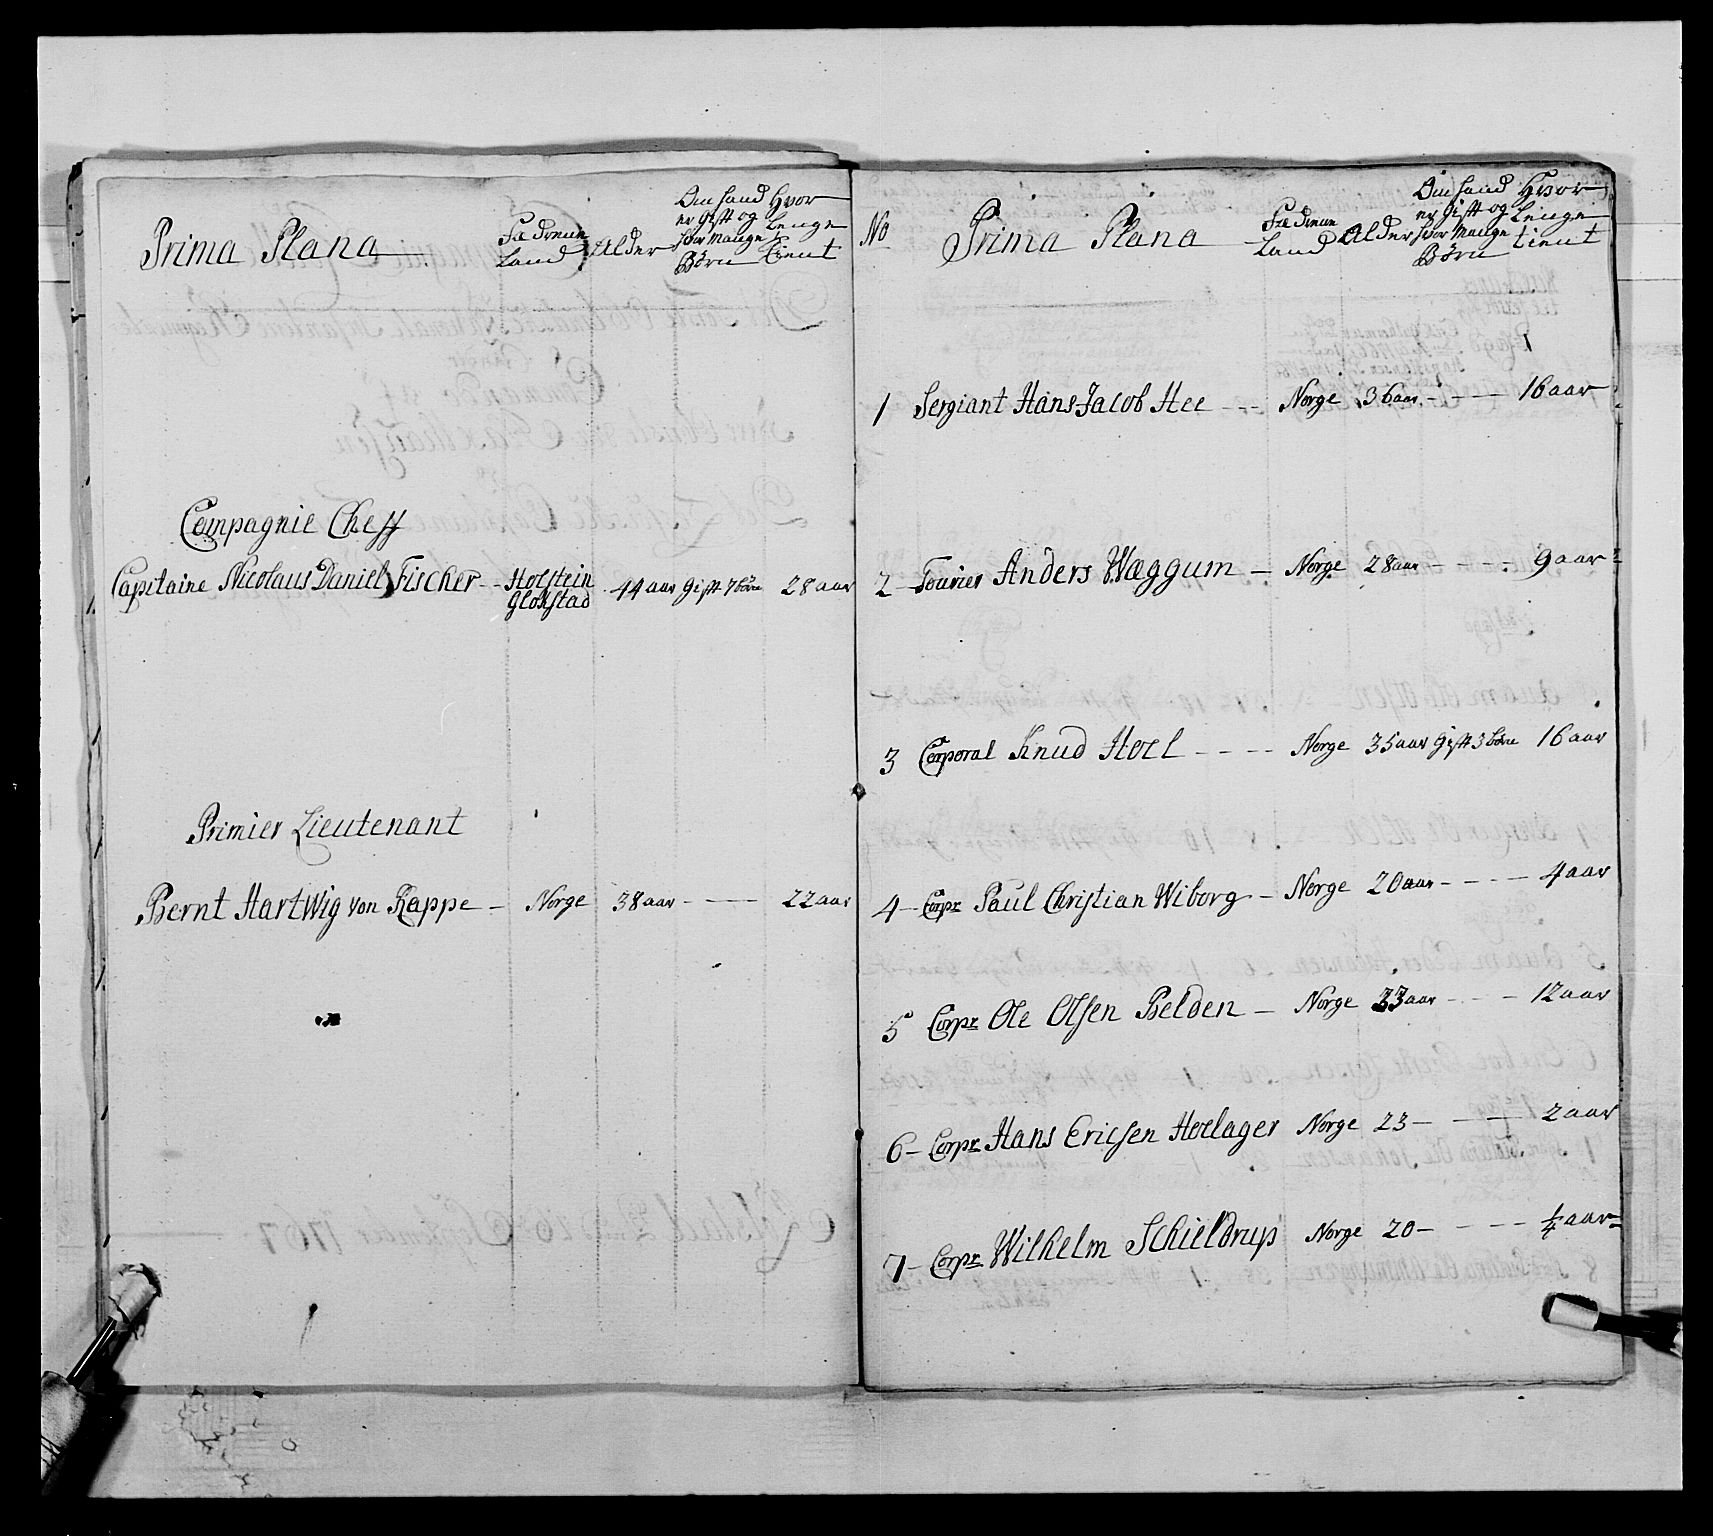 Prima Plana
Fædrene Land
Alder
Om hand er Gift og Hvor Mange Børn
Hvor Lenge tient
Compagnie Cheff
Capitaine Nicolaus Daniel Fischer - Holstein Glokstad 44 aar Gift 7 børn 28 aar
Primier Lieutenant
Bernt Hartwig von Rappe - Norge 38 aar - - - 22 aar
No
Prima Plana
Fædrene Land
Alder
Om hand er Gift og Hvor Mange Børn
Hvor Lenge tient
1 Sergiant Hans Jacob Hee - - - Norge 36 aar - - - - 16 aar
2 - Fourier Anders Wæggum - Norge 28 aar - - - - 9 aar
3 Corporal Knud Hoel - - - - Norge 35 aar Gift 3 børn 16 aar
4 - Corpr Paul Christian Wiborg - Norge 20 aar - - - - 4 aar
5 Corpr Ole Olsen Belden - Norge 33 aar - - - 12 aar
6 - Corpr Hans Ericsen Hoelager Norge 23 - - - 2 aar
7 - Corpr Wilhelm Schieldrup Norge 20 - - - - 1/4 aar